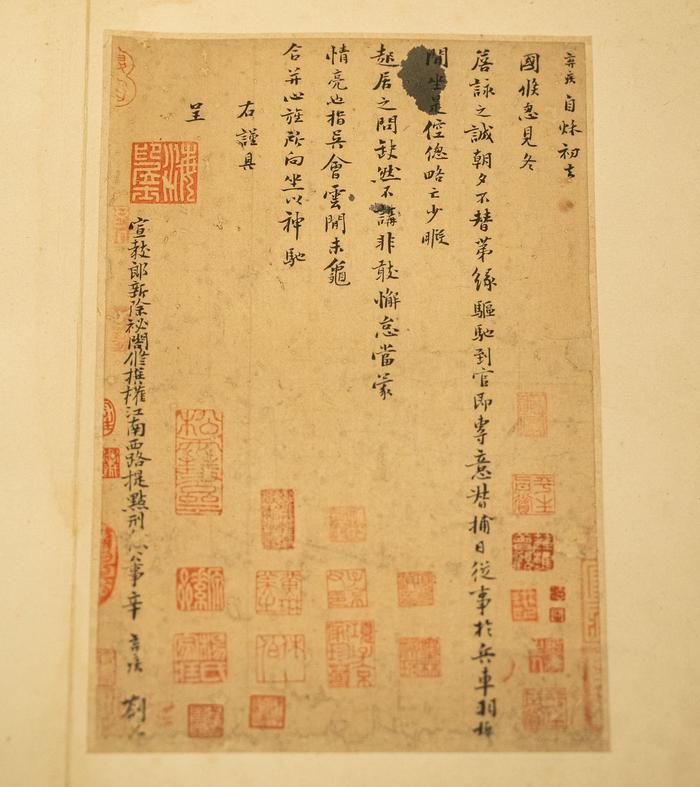 棄疾自秋初去
國倐忽見冬
詹詠之誠朝夕不替第緣驅馳到官即專意督捕日從事於兵車羽檄
間坐是倥傯略亡少暇
起居之問缺然不講非敢懈怠當蒙
情亮也指吳會雲間未龜
合并心旌所向坐以神馳
右謹具
呈
宣教郎新除秘閣修撰權江南西路提點刑獄公事辛棄疾劄子